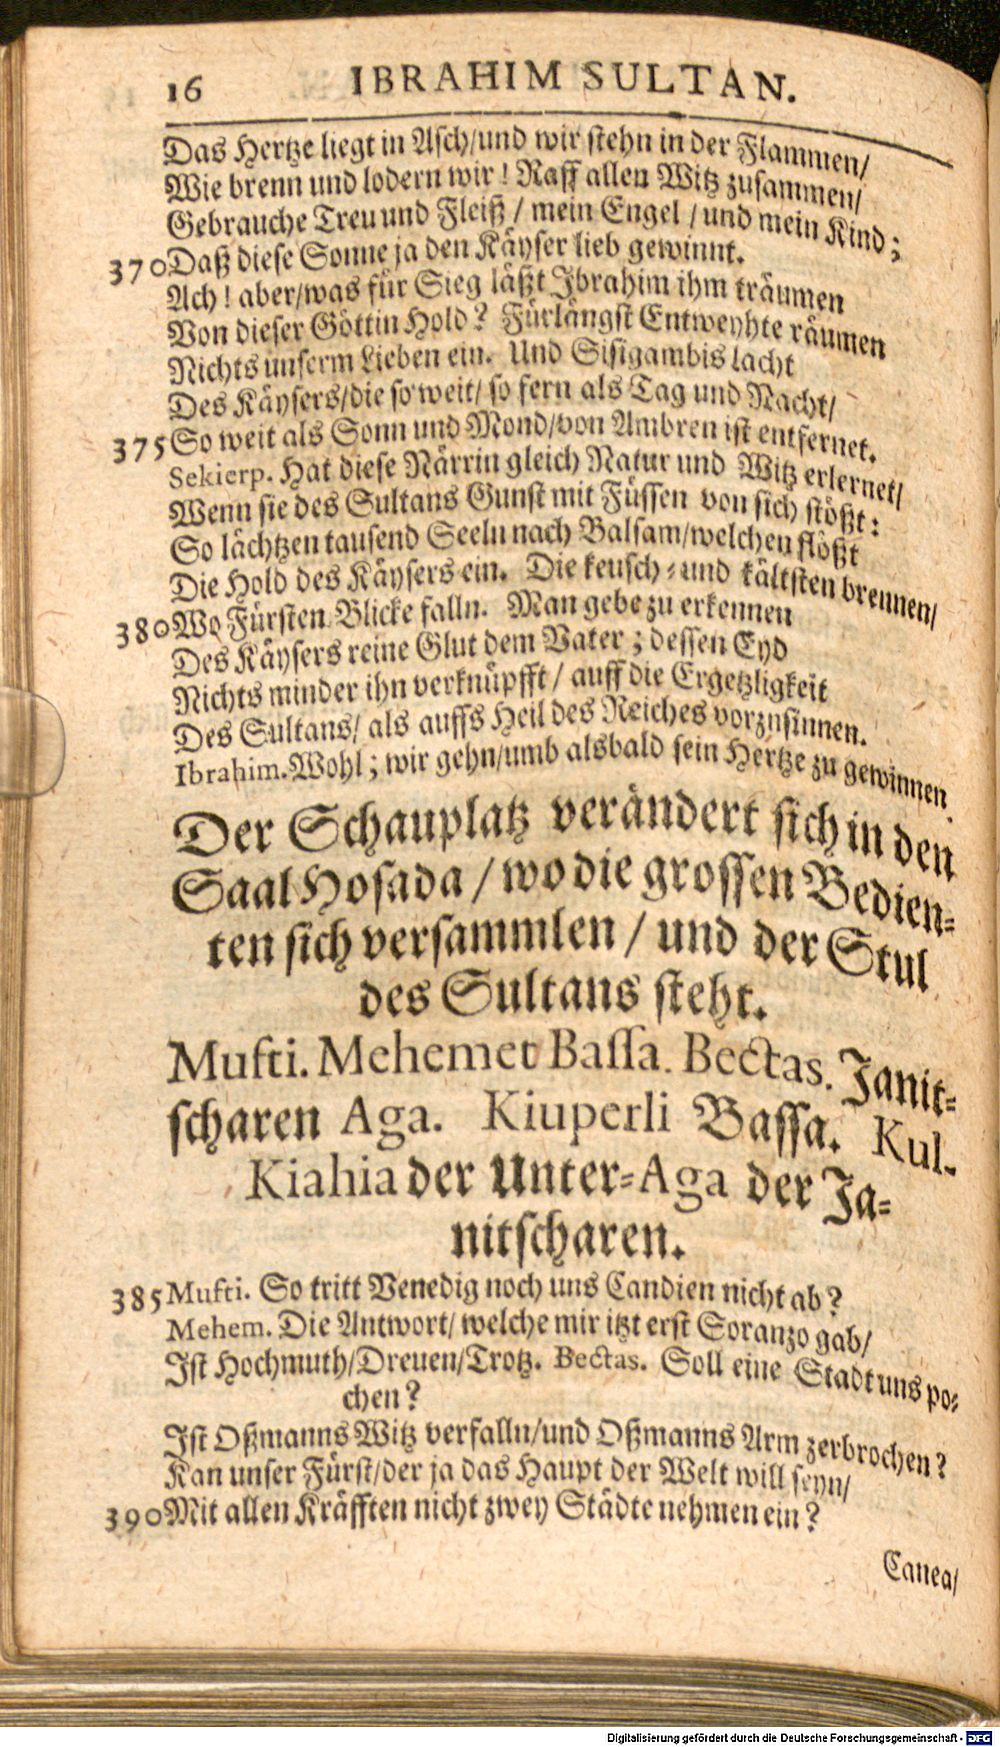 16 IBRAHIM SULTAN.
Das Hertze liegt in Asch/und wir stehn in der Flammen/
Wie brenn und lodern wir! Raff allen Witz zusammen/
Gebrauche Treu und Fleiß / mein Engel / und mein Kind;
370 Daß diese Sonne ja den Käyser lieb gewinnt.
Ach! aber/was für Sieg läßt Ibrahim ihm träumen
Von dieser Göttin Hold? Fürlängst Entweyhte räumen
Nichts unserm Lieben ein. Und Sisigambis lacht
Des Käysers/die so weit/ so fern als Tag und Nacht/
375 So weit als Sonn und Mond/von Ambren ist entfernet.
Sekierp. Hat diese Närrin gleich Natur und Witz erlernet/
Wenn sie des Sultans Gunst mit Füssen von sich stößt:
So lächtzen tausend Seeln nach Balsam/welchen flößt
Die Hold des Käysers ein. Die keusch-und kältsten brennen/
380 Wo Fürsten Blicke falln. Man gebe zu erkennen
Des Käysers reine Glut dem Vater; dessen Eyd
Nichts minder ihn verknüpfft/ auff die Ergetzligkeit
Des Sultans/ als auffs Heil des Reiches vorzusinnen.
Ibrahim. Wohl; wir gehn/umb alsbald sein Hertze zu gewinnen.
Der Schauplatz verändert sich in den
Saal Hosada / wo die grossen Bedien-
ten sich versammlen / und der Stul
des Sultans steht.
Mufti. Mehemet Bassa. Bectas. Janit-
scharen Aga. Kiuperli Bassa. Kul-
Kiahia der Unter-Aga der Ja-
nitscharen.
385 Mufti. So tritt Venedig noch uns Candien nicht ab?
Mehem. Die Antwort/ welche mir itzt erst Soranzo gab/
Ist Hochmuth/Dreuen/Trotz. Bectas. Soll eine Stadt uns po-
chen?
Ist Oßmanns Witz verfalln/und Oßmanns Arm zerbrochen?
Kan unser Fürst/der ja das Haupt der Welt will seyn/
390 Mit allen Kräfften nicht zwey Städte nehmen ein?
Canea/
Digitalisierung gefördert durch die Deutsche Forschungsgemeinschaft - DFG